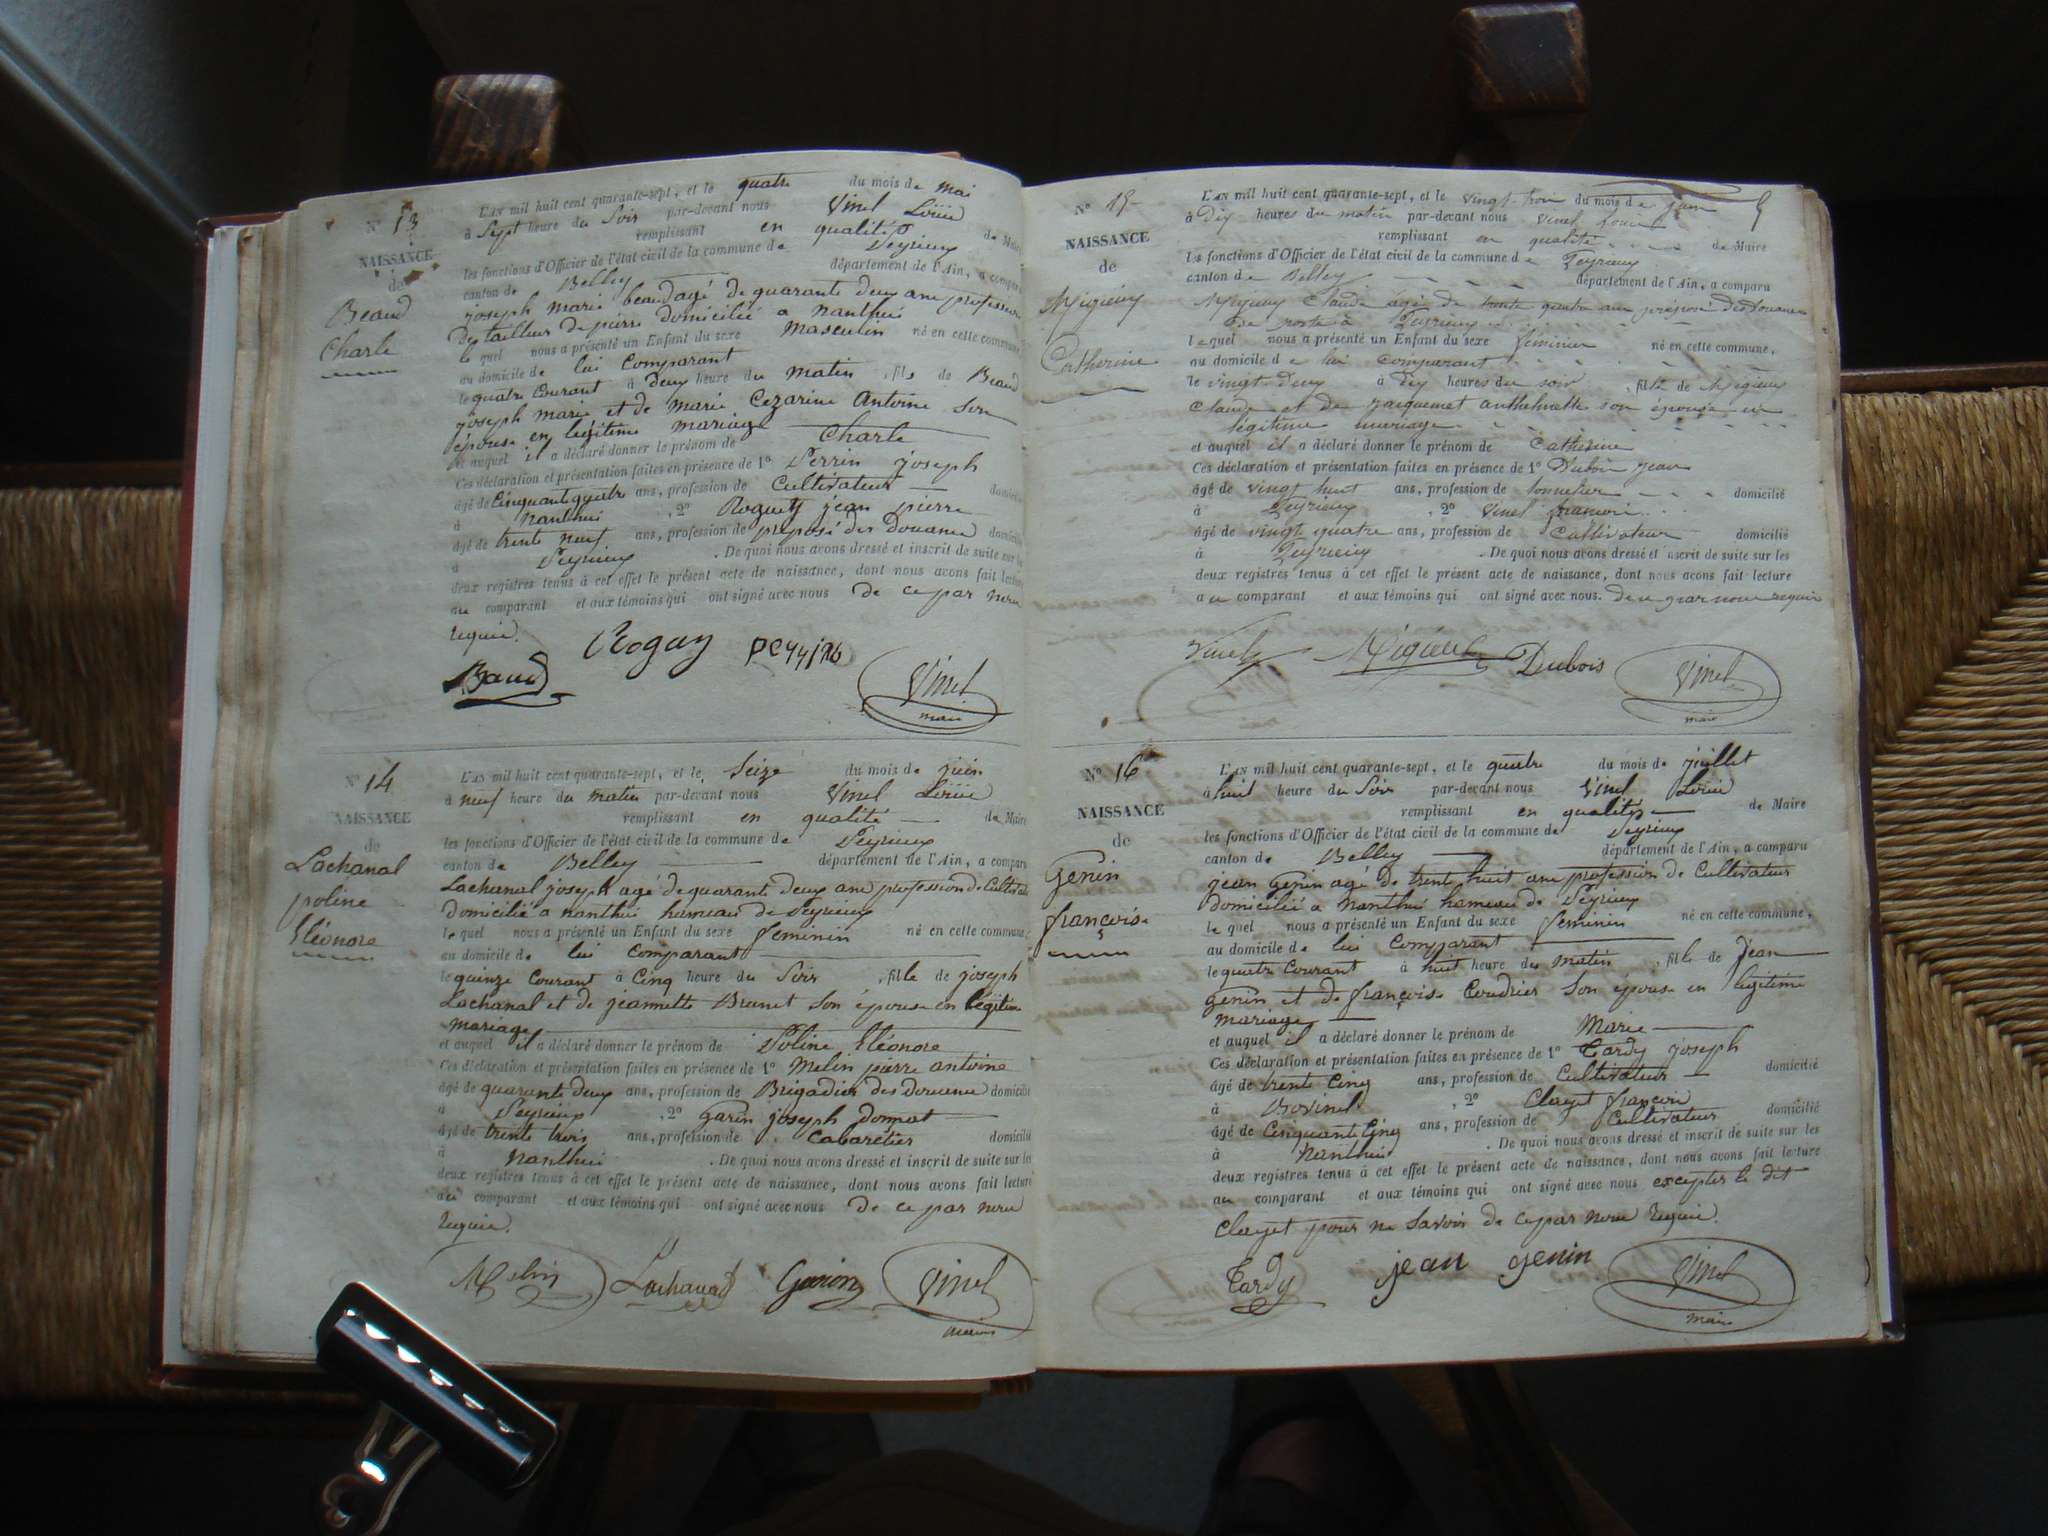 N° 13
NAISSANCE
de
Beaud
Charle
L'AN mil huit cent quarante-sept, et le quatre du mois de mai
à Sept heure du Soir par-devant nous Vinel Louis
remplissant en qualité de Maire
les fonctions d'Officier de l'état civil de la commune de Peyrieux
canton de Belley département de l'Ain, a comparu
joseph marie beaud agé de quarante deux ans profession
De tailleur de pierre domicilié a nanthui
le quel nous a présenté un Enfant du sexe Masculin né en cette commune
au domicile de lui Comparant
le quatre Courant à deux heure du matin, fils de Beaud
joseph marie et de marie Cezarine Antoine Son
épouse en légitime mariage
et auquel il a déclaré donner le prénom de Charle
Ces déclaration et présentation faites en présence de 1° Perrin joseph
âgé de Cinquante quatre ans, profession de Cultivateur domicilié
à nanthui, 2° Roguet jean pierre
âgé de trente neuf ans, profession de preposé des Douanes domicilié
à Peyrieux. De quoi nous avons dressé et inscrit de suite sur les
deux registres tenus à cet effet le présent acte de naissance, dont nous avons fait lecture
au comparant et aux témoins qui ont signé avec nous De ce par nous
requis.
Baud Vinel
maire
N° 14
NAISSANCE
de
Lachanal
poline
Eléonore
L'AN mil huit cent quarante-sept, et le Seize du mois de juin
à neuf heure du matin par-devant nous Vinel Louis
remplissant en qualité de Maire
les fonctions d'Officier de l'état civil de la commune de Peyrieux
canton de Belley département de l'Ain, a comparu
Lachanal joseph agé de quarante deux ans profession de Cultivateur
domicilié a nanthui hameau de Peyrieux
le quel nous a présenté un Enfant du sexe feminin né en cette commune,
au domicile de lui comparant
le quinze Courant à Cinq heure du Soir, fille de joseph
Lachanal et de jeannette Brunet Son épouse en légitime
mariage
et auquel il a déclaré donner le prénom de Poline Eléonore
Ces déclaration et présentation faites en présence de 1° Melin pierre antoine
âgé de quarante deux ans, profession de Brigadier des Douanes domicilié
à Peyrieux, 2° Garin joseph Donnat
âgé de trente trois ans, profession de Cabarétier domicilié
à Nanthui. De quoi nous avons dressé et inscrit de suite sur les
deux registres tenus à cet effet le présent acte de naissance, dont nous avons fait lecture
au comparant et aux témoins qui ont signé avec nous De ce par nous
requis.
Melin Lachanal Garin Vinel
maire
N° 15
NAISSANCE
de
Migieux
Catherine
L'AN mil huit cent quarante-sept, et le vingt trois du mois de juin
à Dix heures du matin par-devant nous Vinel Louis
remplissant en qualité de Maire
les fonctions d'Officier de l'état civil de la commune de Peyrieux
canton de Belley département de l'Ain, a comparu
Migieux Claude âgé de trente quatre ans préposé des douanes
de poste à Peyrieux
lequel nous a présenté un Enfant du sexe féminin né en cette commune,
au domicile de lui comparant
le vingt deux à dix heures du soir, fille de Migieux
Claude et de jacquemet anthelmette son épouse en
légitime mariage
et auquel il a déclaré donner le prénom de Catherine
Ces déclaration et présentation faites en présence de 1° Dubois jean
âgé de vingt huit ans, profession de tonnelier domicilié
à Peyrieux, 2° Vinel francois
âgé de vingt quatre ans, profession de Cultivateur domicilié
à Peyrieux. De quoi nous avons dressé et inscrit de suite sur les
deux registres tenus à cet effet le présent acte de naissance, dont nous avons fait lecture
au comparant et aux témoins qui ont signé avec nous. de ce par nous requis
Vinel Migieux Dubois Vinel
maire
N° 16
NAISSANCE
de
Genin
françoise
L'AN mil huit cent quarante-sept, et le quatre du mois de juillet
à huit heure du Soir par-devant nous Vinel Louis
remplissant en qualité de Maire
les fonctions d'Officier de l'état civil de la commune de Peyrieux
canton de Belley département de l'Ain, a comparu
jean Genin agé de trente huit ans profession de Cultivateur
domicilié a Nanthui hameau de Peyrieux
le quel nous a présenté un Enfant du sexe feminin né en cette commune,
au domicile de lui Comparant
le quatre Courant à huit heure du matin, fille de Jean
genin et de françoise Coudrier Son épouse en legitime
mariage
et auquel il a déclaré donner le prénom de Marie
Ces déclaration et présentation faites en présence de 1° Tardy joseph
âgé de trente Cinq ans, profession de Cultivateur domicilié
à, 2° Clayet françois
âgé de Cinquante Cinq ans, profession de Cultivateur domicilié
à Nanthui. De quoi nous avons dressé et inscrit de suite sur les
deux registres tenus à cet effet le présent acte de naissance, dont nous avons fait lecture
au comparant et aux témoins qui ont signé avec nous excepter le dit
Clayet pour ne Savoir de ce par nous requis.
Tardy jean genin Vinel
maire